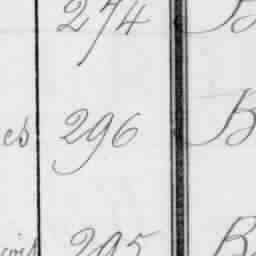 274 B
es 296 B
295 B